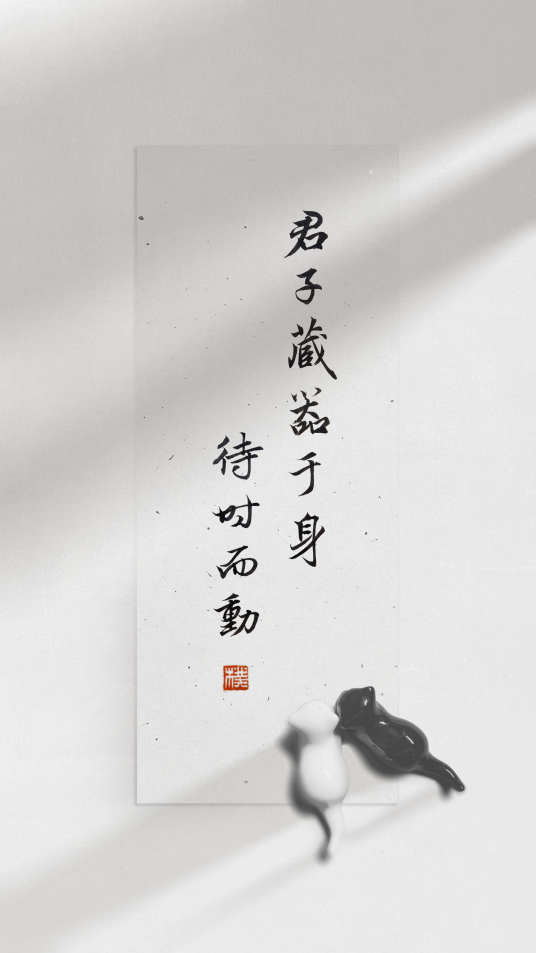 君子蔵器于身
待时而動